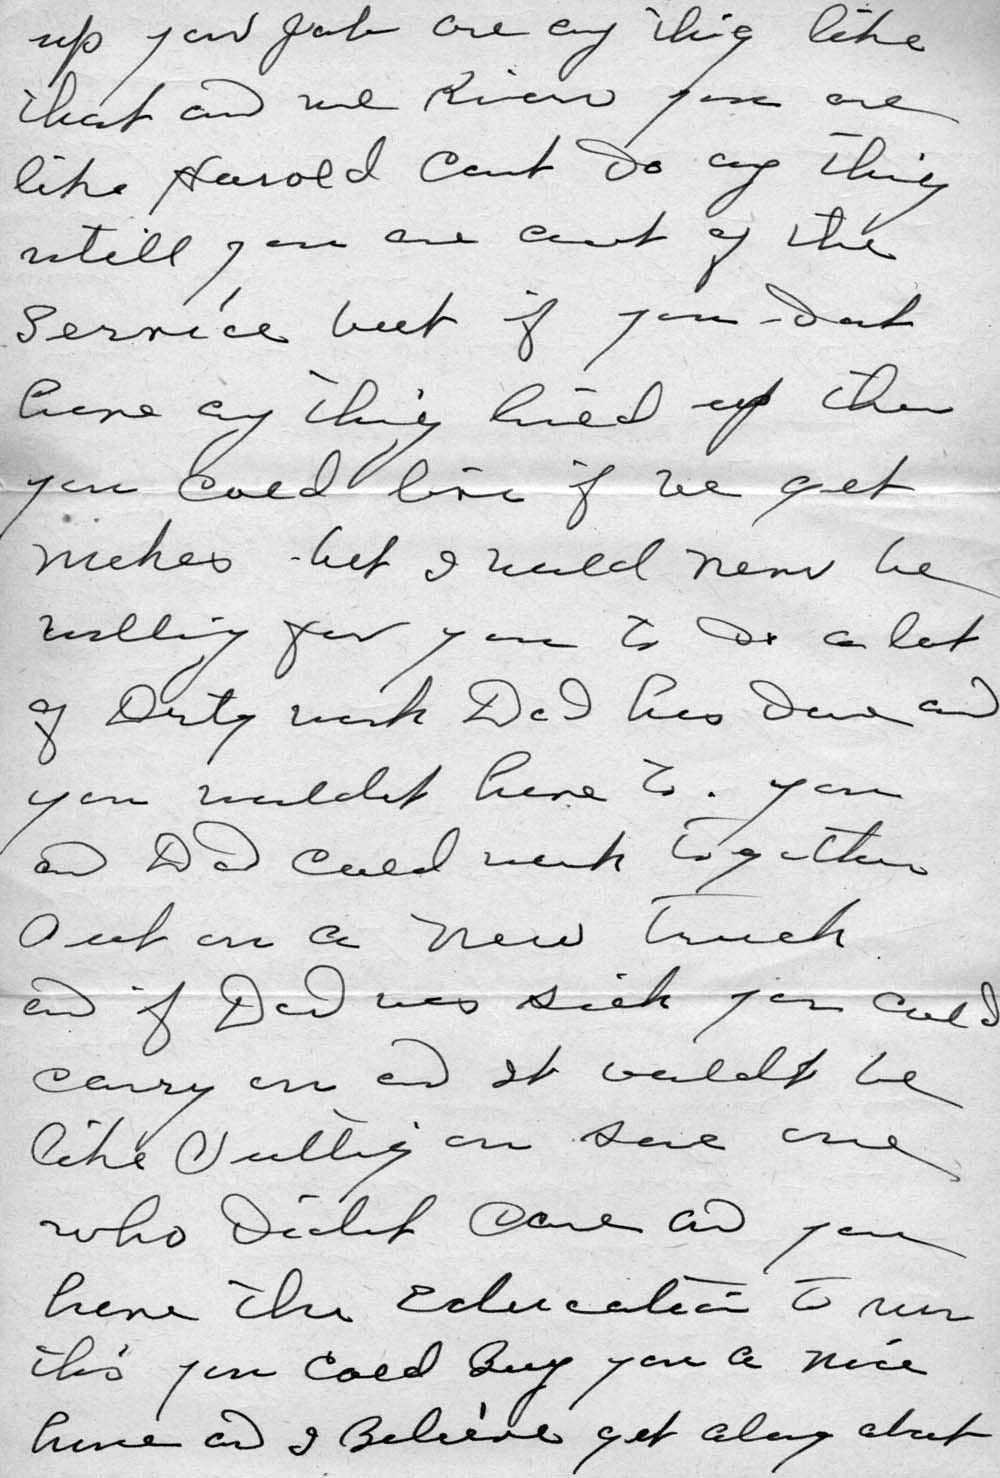 up your Job ore any thing like
that and we Know you are
like Harold cant do any thing
untill you are out of the
Service but if you dont
have any thing lined up then
you could if we get
but I would never be
willing for you to do a lot
of Dirty work Dad has done and
you wouldt have to. you
and Dad could work together
Out on a New Truck
and if Dad was sick you could
carry on and It wouldt be
like Putting on some one
who didt Care and you
have the Education to run
this you could Buy you a nice
home and I Believe get along about